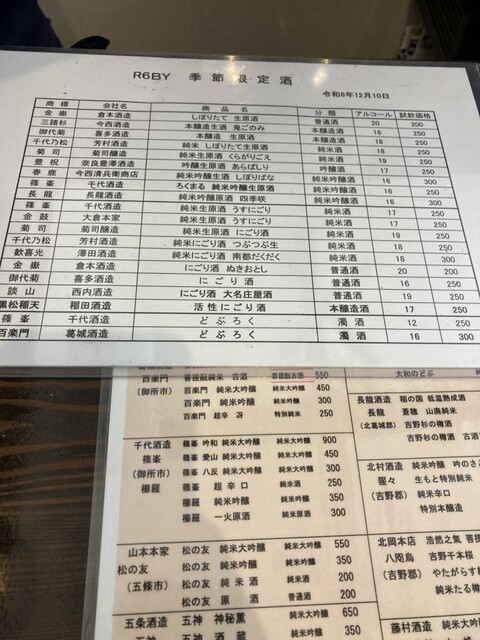 R6BY 季節限定酒
令和6年12月10日
商標 会社名 商品名 分類 アルコール 試飲価格
金嶽 倉本酒造 しぼりたて 生原酒 普通酒 20 200
三諸杉 今西酒造 本醸造生酒 鬼ごのみ 本醸造酒 16 250
御代菊 喜多酒造 本醸造 生原酒 本醸造酒 18 250
千代乃松 芳村酒造 純米 しぼりたて生原酒 純米酒 18 250
菊司 菊司醸造 純米生原酒 くらがりごえ 純米酒 19 250
豊祝 奈良豊澤酒造 吟醸生原酒 あらばしり 吟醸酒 17 250
春鹿 今西清兵衛商店 純米吟醸生酒 しぼりばな 純米吟醸 16 300
篠峯 千代酒造 ろくまる 純米吟醸生原酒 純米吟醸
長龍 長龍酒造 純米吟醸原酒 四季咲 純米吟醸 16 300
篠峯 千代酒造 純米生原酒 うすにごり 純米酒 17 250
金鼓 大倉本家 純米生原酒 うすにごり 純米酒 17 250
菊司 菊司醸造 純米生原酒 にごり 純米酒 19 250
千代乃松 芳村酒造 純米にごり酒 つぶつぶ生 純米酒 18 250
歓喜光 澤田酒造 純米にごり酒 南都だくだく 純米酒 18 300
金嶽 倉本酒造 にごり酒 ぬきおとし 普通酒 20 200
御代菊 喜多酒造 にごり酒 普通酒 16 250
談山 西内酒造 にごり酒 大名庄屋酒 普通酒 19 250
黒松稲天 稲田酒造 活性にごり酒 本醸造酒 17 250
篠峯 千代酒造 どぶろく 濁酒 12 250
百楽門 葛城酒造 どぶろく 濁酒 16 300
百楽門 菩提酛純米 古酒 菩提酛古酒 550
(御所市) 百楽門 純米大吟醸 純米大吟醸 450
百楽門 純米吟醸 純米吟醸 300
百楽門 超辛 冴 特別純米 250
千代酒造 篠峯 吟和 純米大吟醸 純米大吟醸 900
篠峯 篠峯 愛山 純米大吟醸 純米大吟醸 450
(御所市) 篠峯 八反 純米吟醸 純米吟醸 300
櫛羅 篠峯 超辛口 純米酒 250
櫛羅 純米吟醸 純米吟醸 350
櫛羅 一火原酒 純米原酒 300
山本本家 松の友 純米大吟醸 純米大吟醸 550
松の友 松の友 純米吟醸 純米吟醸 350
(五條市) 松の友 純米酒 純米酒 200
松の友 原酒 普通酒 200
五条酒造 五神 神秘薫 純米大吟醸 650
五神 五神 酒蔵 純米吟醸 350
大和のどぶ
長龍酒造 稲の国 低温熟成酒
長龍 蒼穂 山廃純米
(北葛城郡) 吉野杉の樽酒
吉野杉の樽酒 古酒
北村酒造 純米吟醸 吟のさと
猩々 生もと特別純米
(吉野郡) 純米辛口
特別本醸造
北岡本店 浩然之氣 菩提
八咫烏 吉野千本桜
(吉野郡) やたがらす
純米たる樽
藤村酒造 純米大吟醸